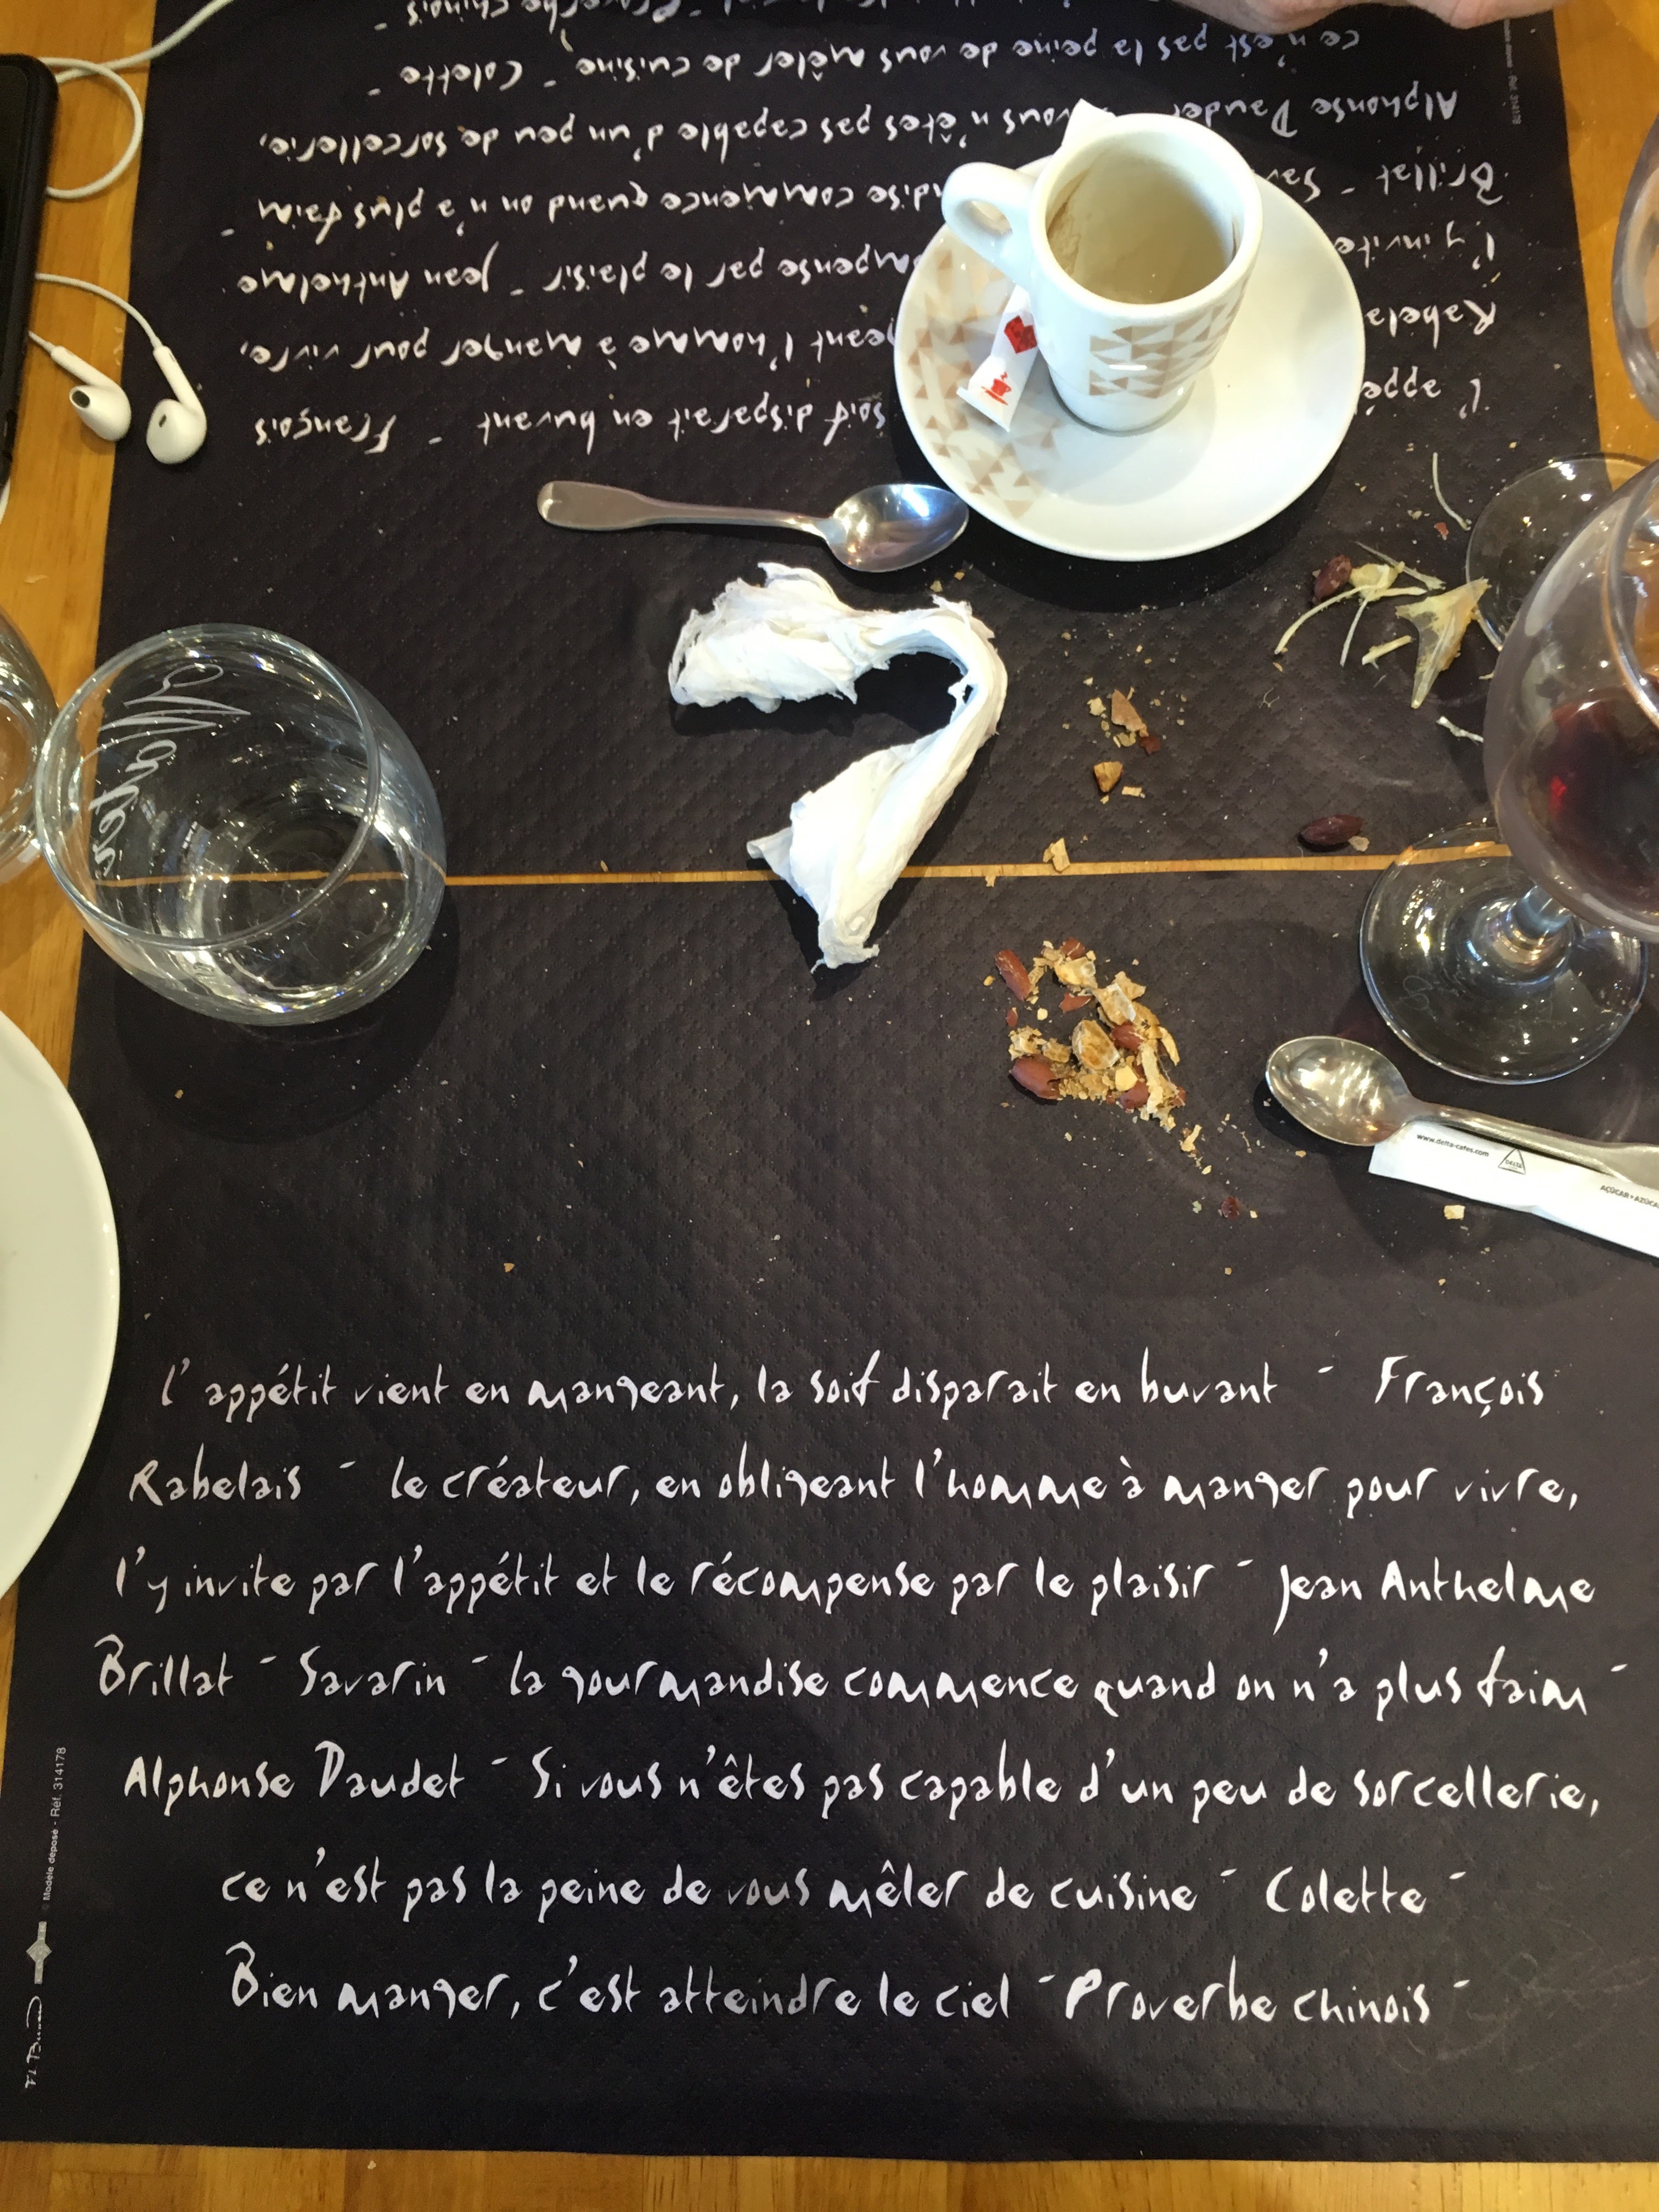 l'appétit vient en mangeant, la soif disparait en buvant - François
Rabelais - le créateur, en obligeant l'homme à manger pour vivre,
l'y invite par l'appétit et le récompense par le plaisir - Jean Anthelme
Brillat - Savarin - la gourmandise commence quand on n'a plus faim -
Alphonse Daudet - Si vous n'êtes pas capable d'un peu de sorcellerie,
ce n'est pas la peine de vous mêler de cuisine - Colette -
Bien manger, c'est atteindre le ciel - Proverbe chinois -
© Modèle déposé - Réf. 314178
soif disparait en buvant - François
Rabelais
l'homme à manger pour vivre,
l'y invite
par le plaisir - Jean Anthelme
Brillat -
commence quand on n'a plus faim -
Alphonse Daudet
vous n'êtes pas capable d'un peu de sorcellerie,
ce n'est pas la peine de vous mêler de cuisine - Colette -
Proverbe chinois -
Réf. 314178
Water
www.delta-cafes.com
DELTA
AÇÚCAR